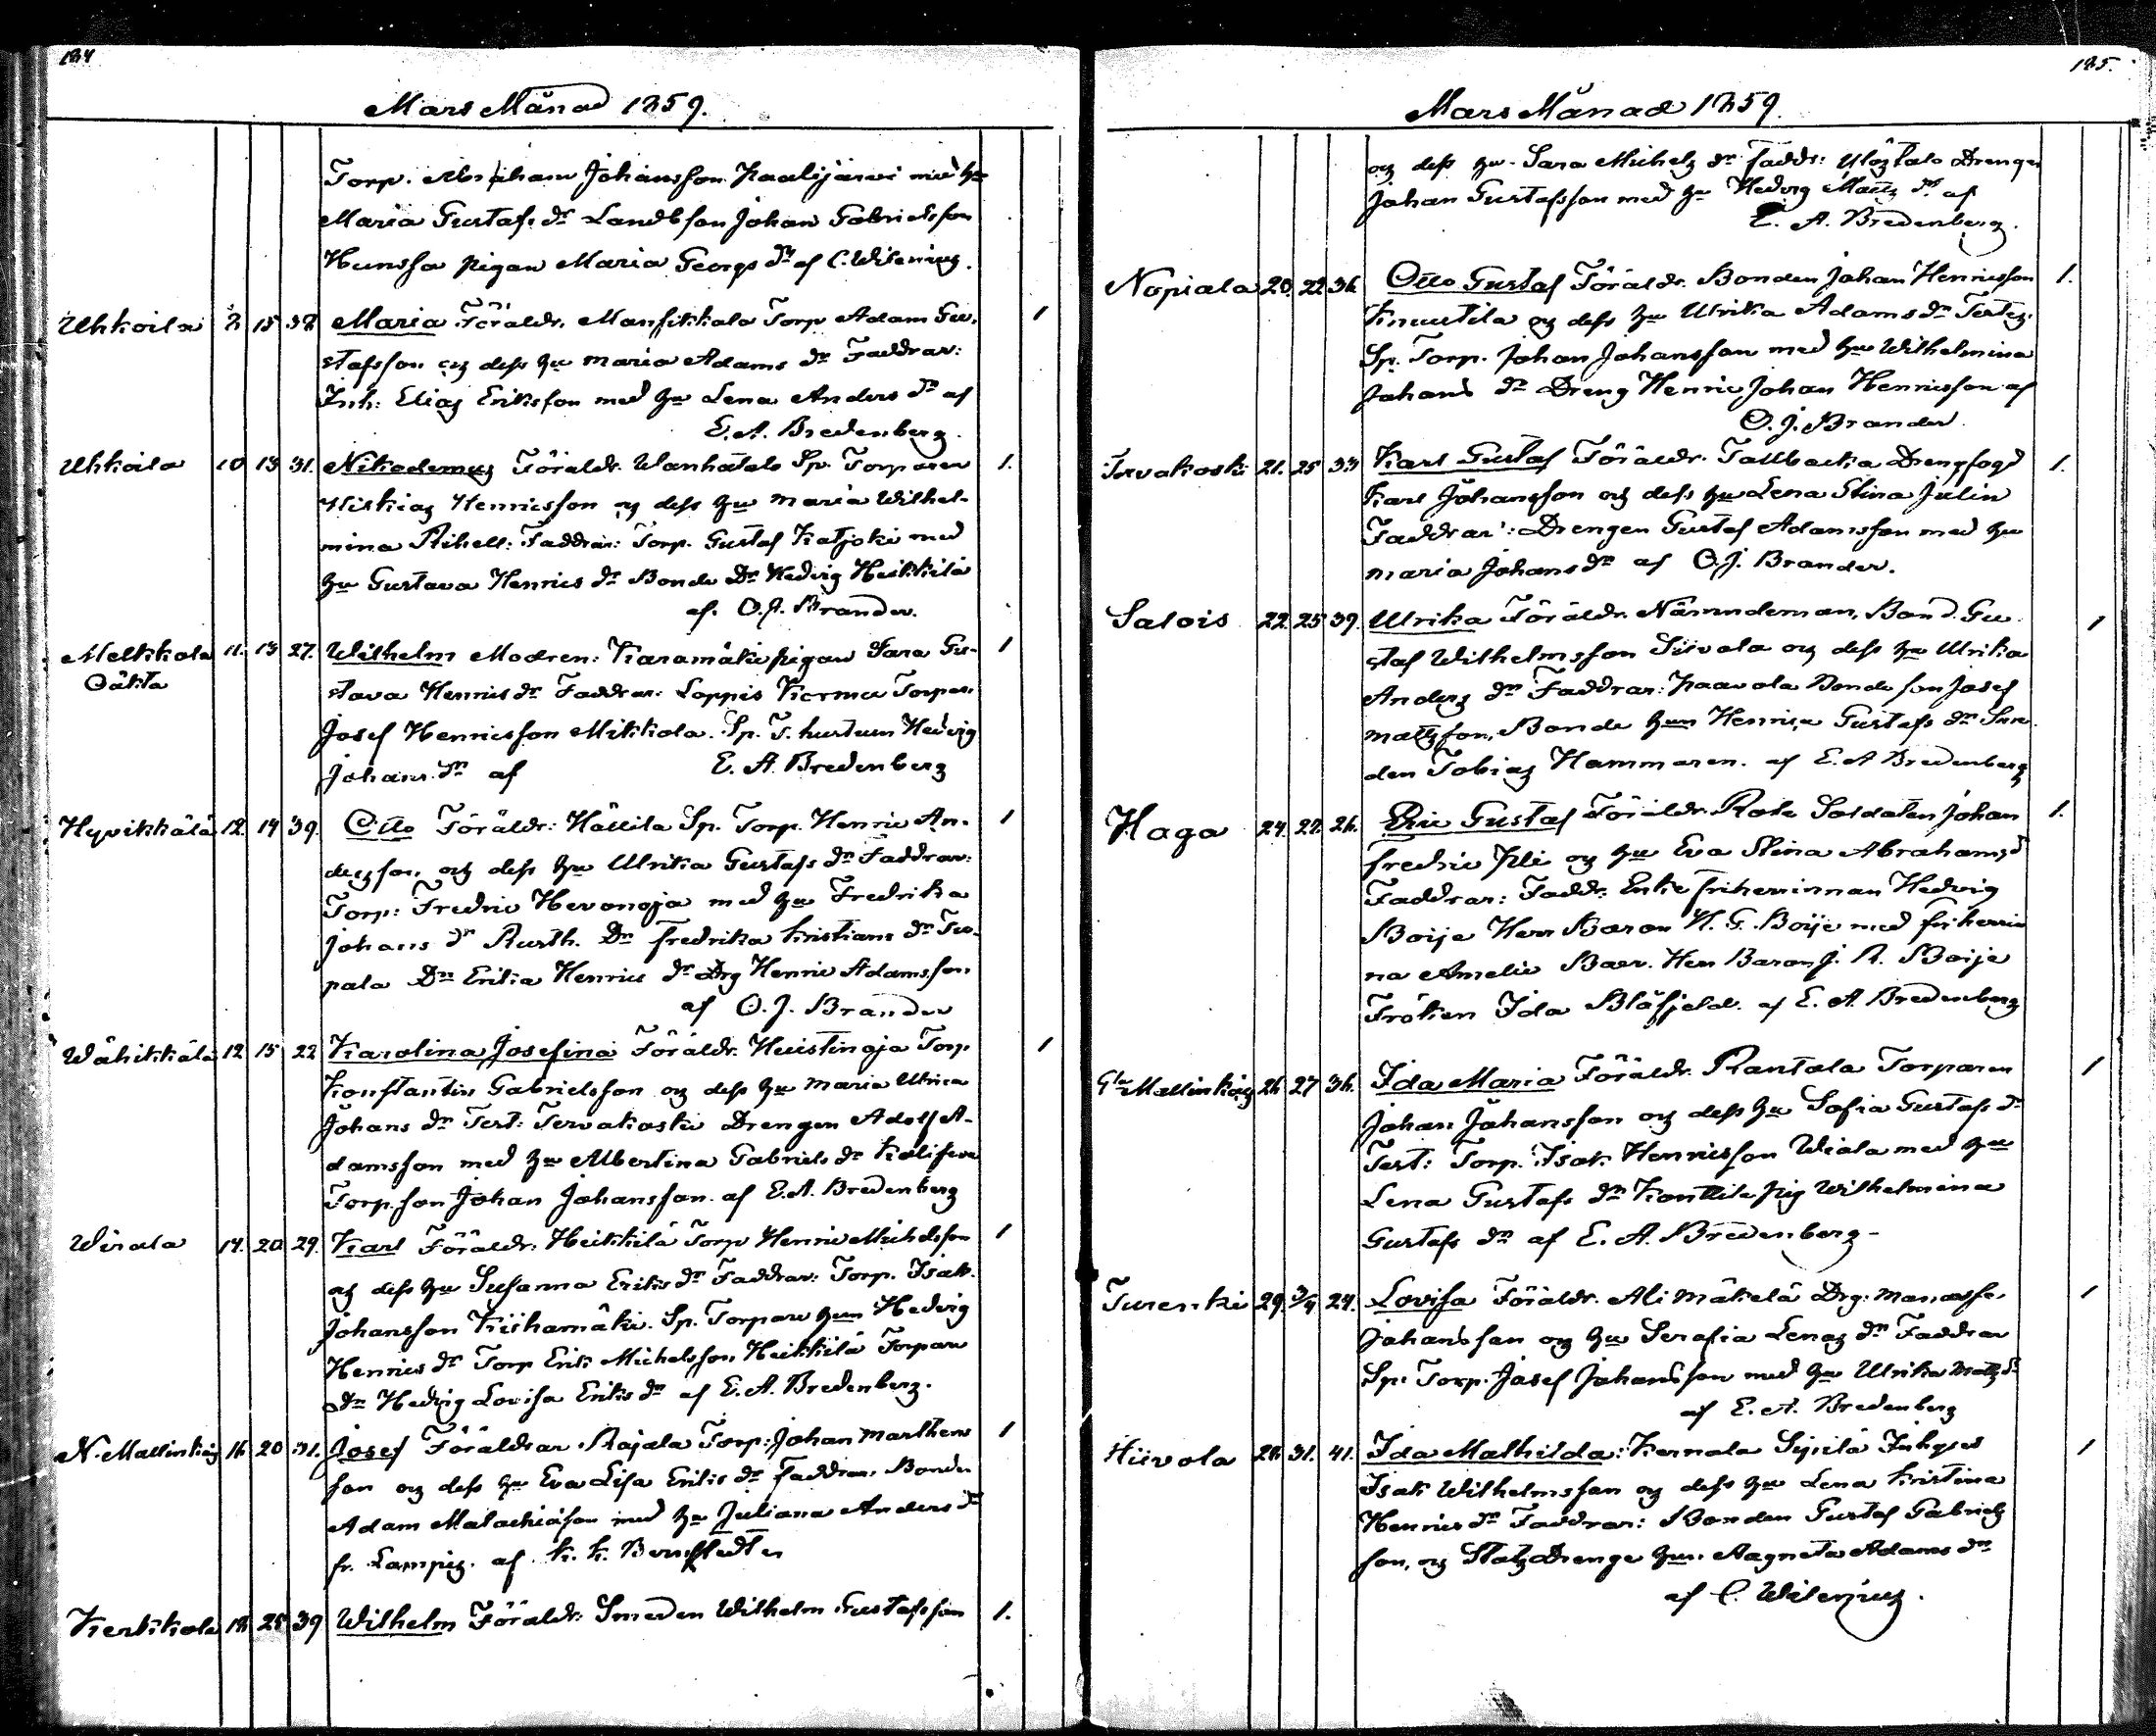 184
Mars Månad 1859.
Torp. Abraham Johansson Kaalijärvi med hu
Maria Gustafs dr Landbson Johan Gabrielsson
Hunsha pigan Maria Georgs dr af C. Wilenius.
Uhkoila 8 15 38 Maria Föräldr. Mansikkala Torp Adam Gu- 1
stafsson og dess hu Maria Adams dr Faddrar:
Inh: Elias Eriksson med hu Lena Anders dr af
E. A. Bredenberg.
Uhkoila 10 13 31. Nikodemus Föräldr. Wanhatalo Sp. Torparen 1.
Hiskias Henricsson og dess hu Maria Wilhel-
mina Rihell: Faddrar: Torp. Gustaf Katjoki med
hu Gustava Henrics dr Bonde Dr Hedvig Heikkilä
af. O. J. Brander.
Melkkola 11. 13 27. Wilhelm Modren: Karamäki pigan Sara Gu- 1
Oäkta
stava Henrics dr Faddrar: Loppis Kormu Torpar.
Josef Henricsson Mikkola. Sp. T. hustrun Hedvig
Johans dr af E. A. Bredenberg
Hyvikkälä 12. 14 39. Otto Föräldr: Hällilä Sp. Torp. Henric An- 1
dersson, og dess hu Ulrika Gustafs dr Faddrar:
Torp: Fredric Hevonoja med hu Fredrika
Johans dr Rusth. Dr Fredrika Kristians dr Tu-
pala Dr Erika Henrics dr Drg Henric Adamsson
af O. J. Brander
Wähikkälä 12 15 22 Karolina Josefina Föräldr. Huistinoja Torp 1
Konstantin Gabrielsson og dess hu Maria Ulrica
Johans dr Test: Tervakoski Drengen Adolf A-
damsson med hu Albertina Gabriels dr
Torp.son Johan Johansson. af E. A. Bredenberg
Wirala 14. 20 29. Karl Föräldr: Heikkilä Torp Henric Michelsson 1
og dess hu Susanna Eriks dr Faddrar: Torp. Isak
Johansson Kiihamäki. Sp. Torpare hun Hedvig
Henrics dr Torp Erik Michelsson Heikkilä Torpare
Dr Hedvig Lovisa Eriks dr af E. A. Bredenberg.
N. Mallinkäis 16 20 31. Josef Föräldrar Rajala Torp: Johan Marthens 1
son og dess hu Eva Lisa Eriks dr Faddrar. Bonden
Adam Malachiasson med hu Juliana Anders dr
fr. Lampis. af K. K. Bernstedter
Kerkkola 18 25 39 Wilhelm Föräldr: Smeden Wilhelm Gustafsson 1.
185.
Mars Månad 1859.
og dess hu Sara Michels dr Faddr: Ylöstalo Drengen
Johan Gustafsson med hu Hedvig Matts dr af
E. A. Bredenberg.
Nopiala 20. 22 36. Otto Gustaf Föräldr. Bonden Johan Henricsson 1.
Knuutila og dess hu Ulrika Adams dr Testes:
Sp. Torp. Johan Johansson med hu Wilhelmina
Johans dr Dreng Henric Johan Henricsson af
O. J. Brander.
Tervakoski 21. 25 33 Karl Gustaf Föräldr. Tallbacka Drengfogd 1.
Karl Johansson og dess hu Lena Stina Julin
Faddrar: Drengen Gustaf Adamsson med hu
Maria Johans dr af O. J. Brander.
Salois 22. 25 39. Ulrika Föräldr. Nämndeman, Bond. Gu- 1
staf Wilhelmsson Siivola og dess hu Ulrika
Anders dr Faddrar: Paavola Bonde son Josef
Mattsson, Bonde hun Henrica Gustafs dr Sven
den Tobias Hammaren. af E. A Bredenberg
Haga 24. 27. 26. Eric Gustaf Föräldr. Rote Soldaten Johan 1.
Fredric Pli og hu Eva Stina Abrahams d
Faddrar: Faddr: Enkefriherrinnan Hedvig
Boije Herr Baron H. G. Boije med friherrin
na Amelie Baer. Herr Baron J. R. Boije
Fröken Ida Blåfjeld. af E. A. Bredenberg
Gla Mallinkäis 26 27 36. Ida Maria Föräldr. Rantala Torparen 1
Johan Johansson og dess hu Sofia Gustafs dr
Test: Torp. Isak Henricsson Wiala med hu
Lena Gustafs dr Konttila pig Wilhelmina
Gustafs dr af E. A. Bredenberg-
Turenki 29. 3/4 24. Lovisa Föräldr. Ali Mäkelä Drg: Manasse 1
Johansson og hu Serafia Lenas dr Faddrar
Sp. Torp. Josef Johansson med hu Ulrika Matts d
af E. A. Bredenberg
Hiivola 28. 31. 41. Ida Mathilda: Kernala Sipilä Inhyses 1
Isak Wilhelmsson og dess hu Lena Kristina
Henrics dr Faddrar: Bonden Gustaf Gabriels
son, og Stats Drenge hun. Aagneta Adams dr
af C. Wilenius.